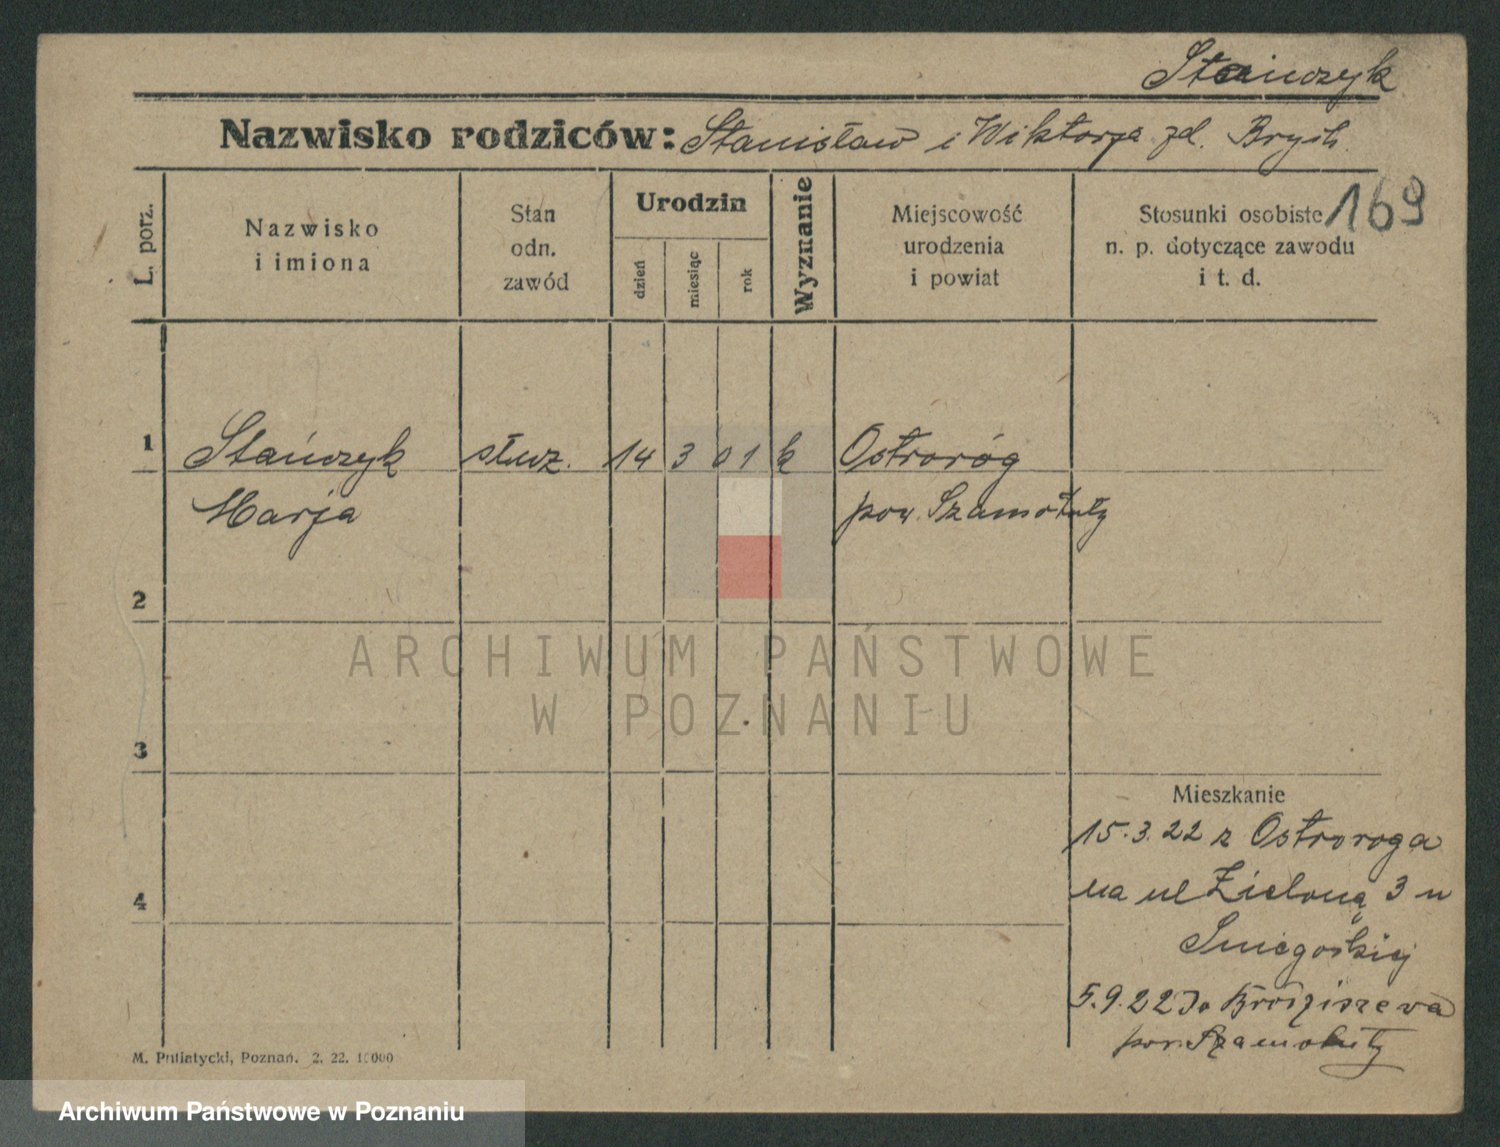 Stańczyk
Nazwisko rodziców: Stanisław i Wiktorja zd. Brych
169
L. porz.
Nazwisko
i imiona
Stan
odn.
zawód
Urodzin
dzień
miesiąc
rok
Wyznanie
Miejscowość
urodzenia
i powiat
Stosunki osobiste
n. p. dotyczące zawodu
i t. d.
1 Stańczyk służ. 14 3 01 k Ostroróg
Marja pow. Szamotuły
2
ARCHIWUM PAŃSTWOWE
W POZNANIU
3
Mieszkanie
15.3.22 z Ostroroga
na ul Zieloną 3 u
4
5.9.22 do Brodziszewa
pow. Szamotuły
M. Putiatycki, Poznań. 2. 22. 10000
Archiwum Państwowe w Poznaniu